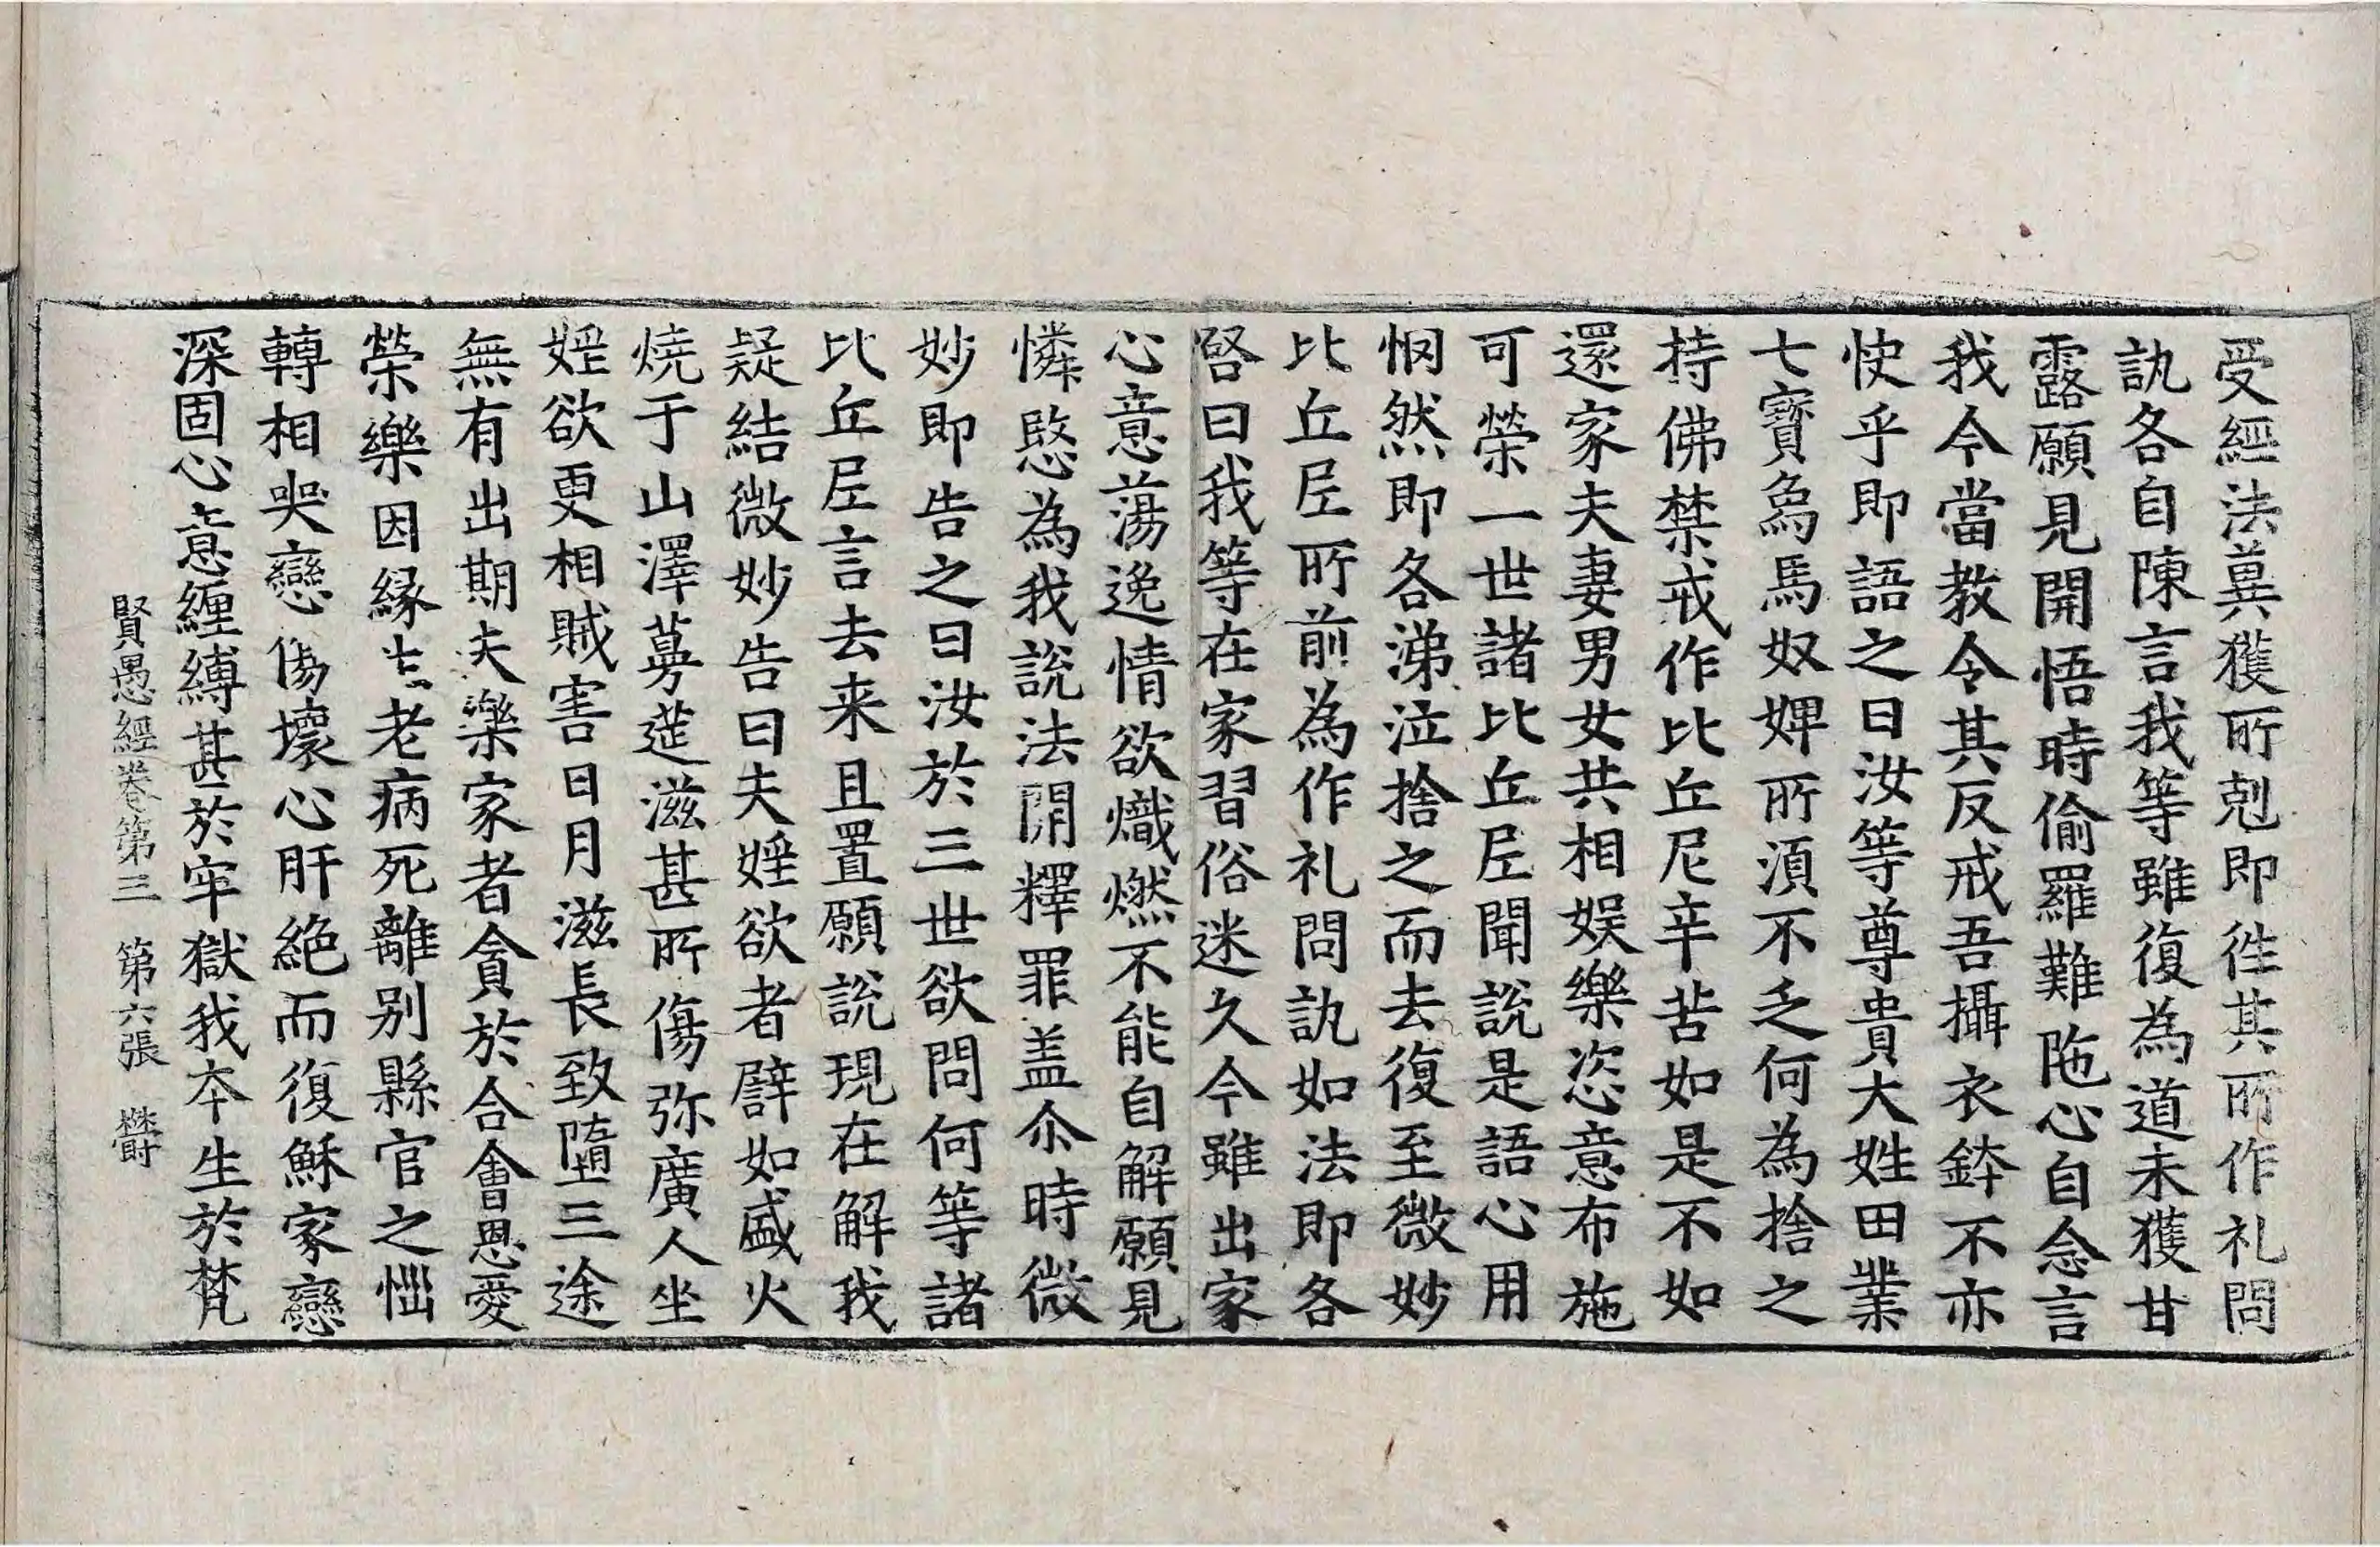 受經法兾獲所剋即徃其所作礼問
訊各自陳言我等雖復為道未獲甘
露願見開悟時偷羅難陁心自念言
我今當教令其反戒吾攝衣鉢不亦
快乎即語之曰汝等尊貴大姓田業
七寶烏馬奴婢所湏不乏何為捨之
持佛禁戒作比丘尼辛苦如是不如
還家夫妻男女共相娱樂恣意布施
可榮一世諸比丘𡰱聞說是語心用
惘然即各涕泣捨之而去復至微妙
比丘𡰱所前為作礼問訊如法即各
啓曰我等在家習俗迷久今雖出家
心意蕩逸情欲熾燃不能自解願見
憐愍為我說法開釋罪盖尒時微
妙即告之曰汝於三世欲問何等諸
比丘𡰱言去来且置願說現在解我
疑結微妙告曰夫婬欲者譬如盛火
燒于山澤蔓莚滋甚所傷弥廣人坐
婬欲更相賊害日月滋長致墮三途
無有出期夫樂家者貪於合會恩愛
榮樂因緣生老病死離别縣官之惱
轉相哭戀傷壞心肝絕而復穌家戀
深固心意纏縛甚於牢獄我夲生於梵
賢愚經卷第三　第六張　欝